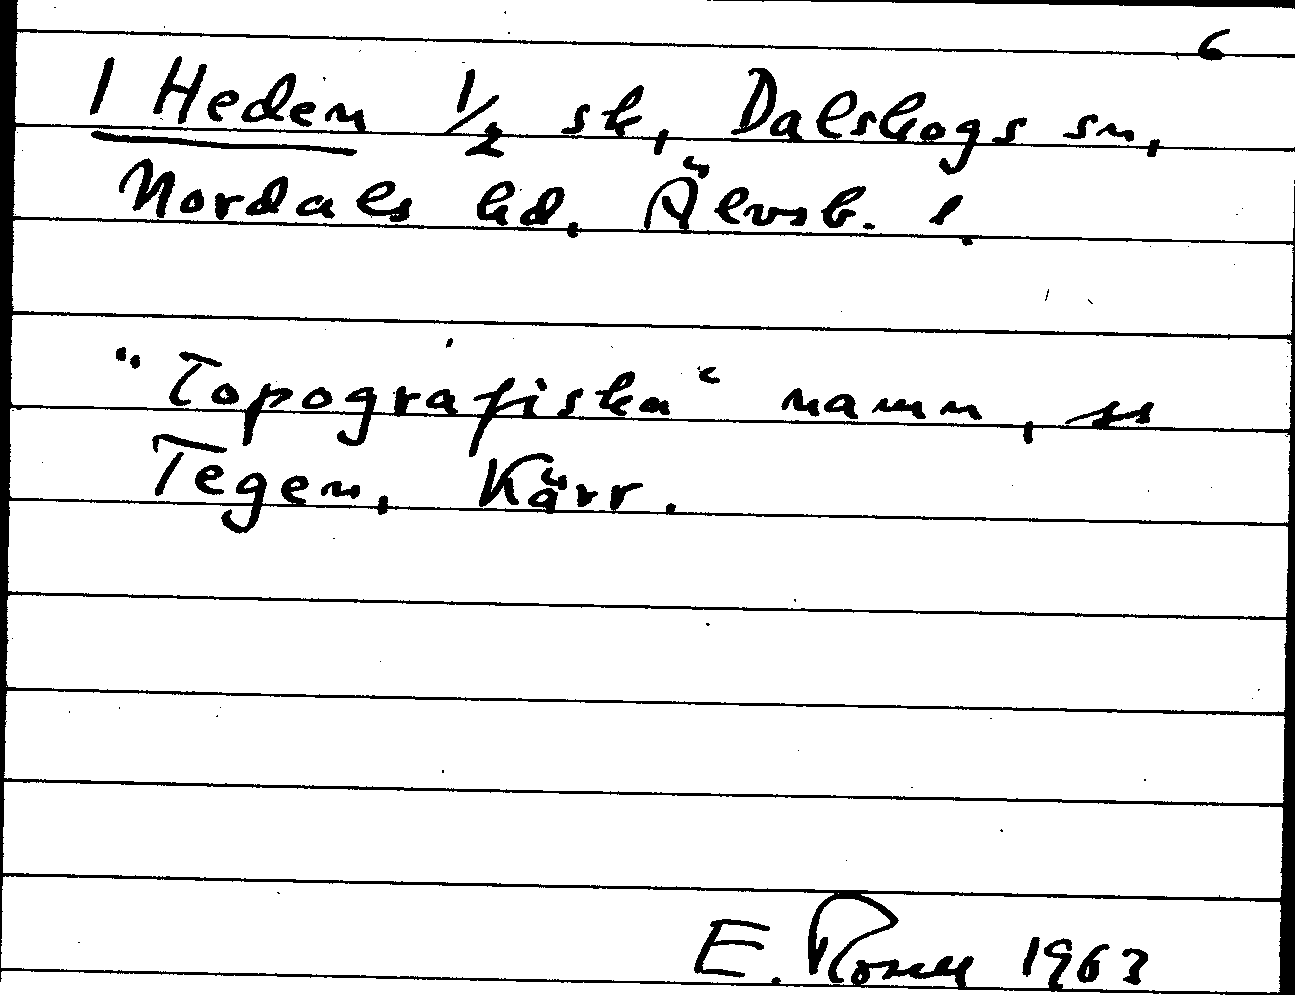 6
1 Heden 1/2 sk, Dalskogs sn,
Nordals hd, Älvsb. l.
"Topografiska" namn, ss
Tegen, Kärr.
E. Rosell 1963